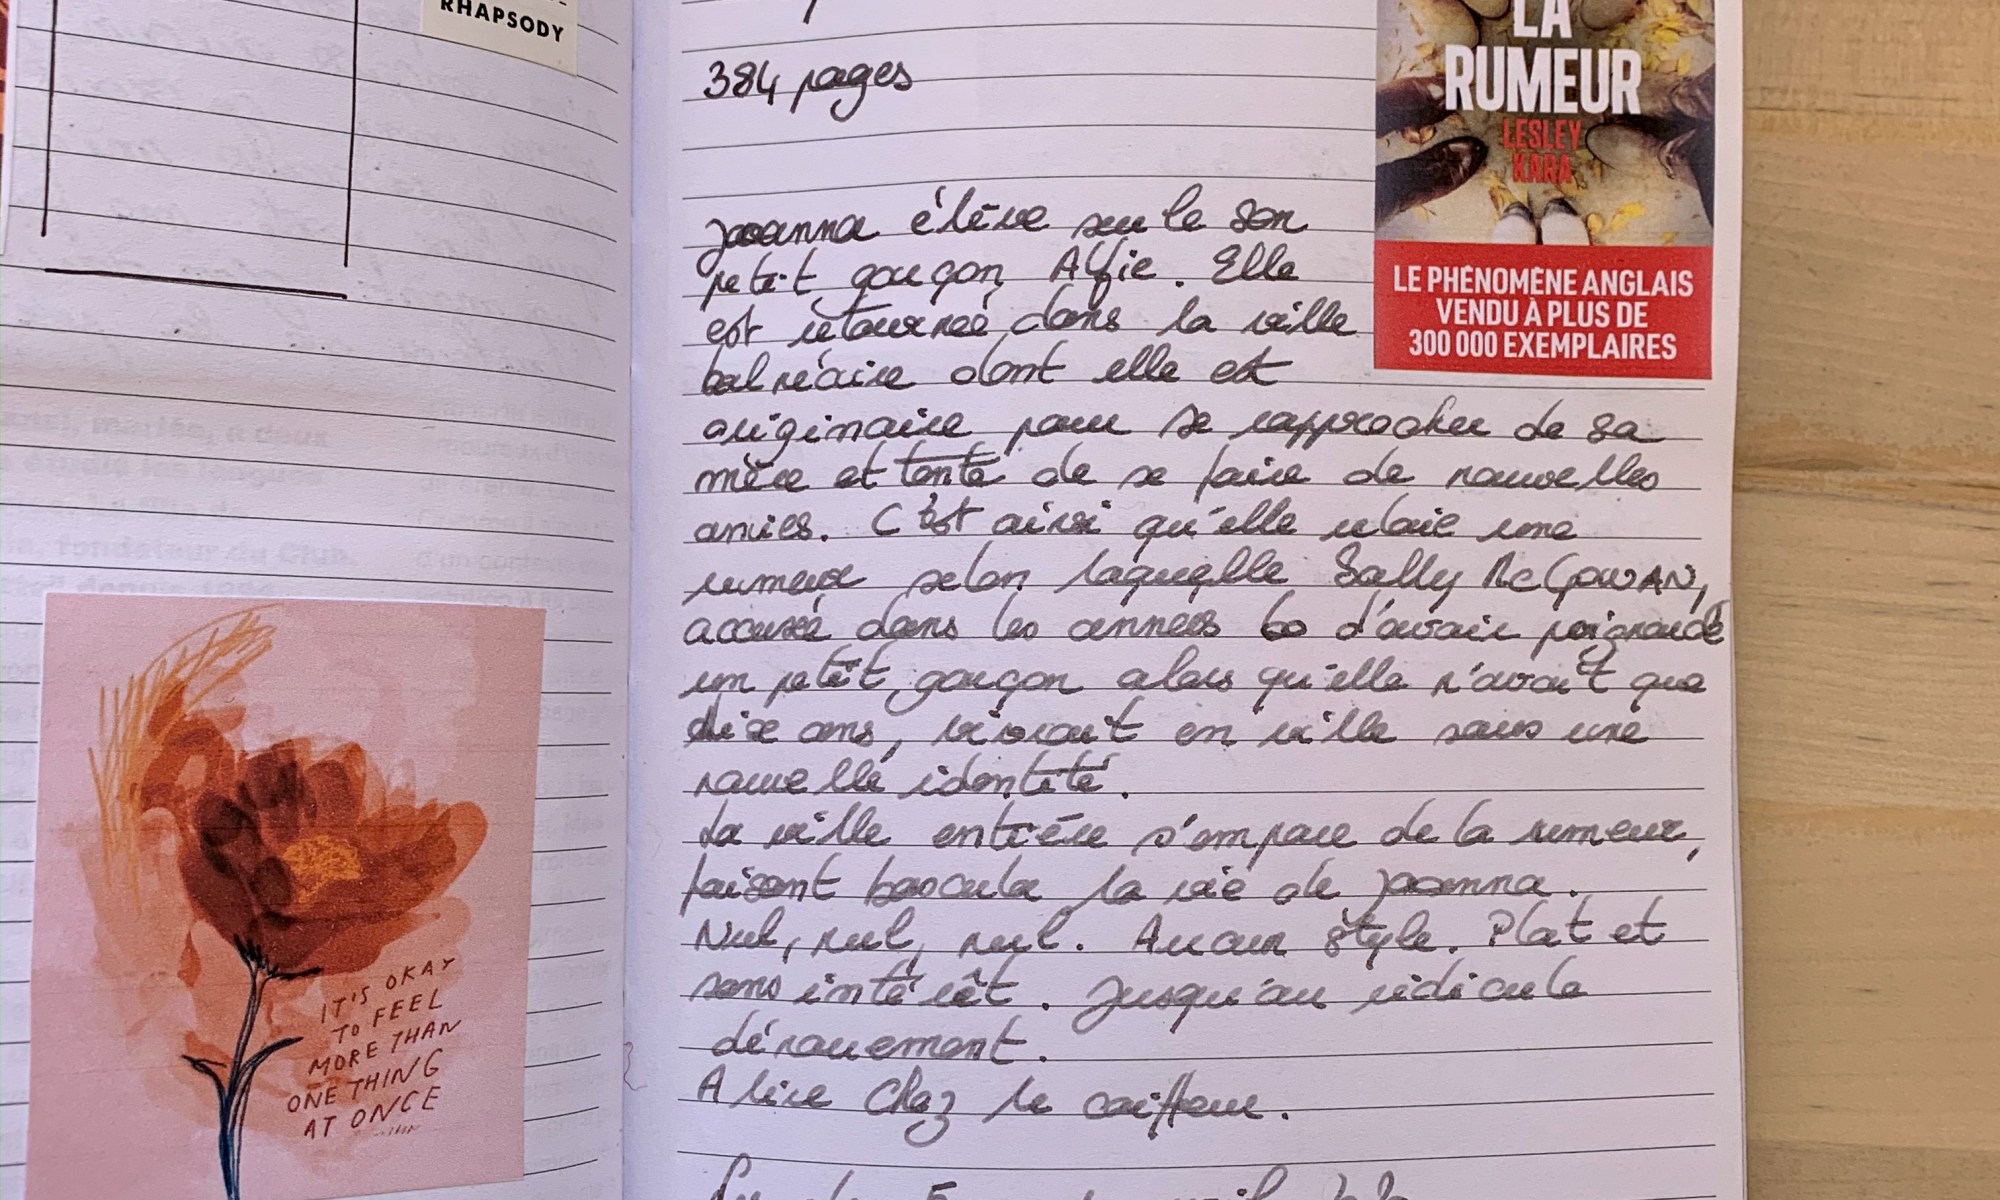 RHAPSODY
IT'S OKAY
TO FEEL
MORE THAN
ONE THING
AT ONCE
384 pages
LA
RUMEUR
LESLEY
KARA
LE PHÉNOMÈNE ANGLAIS
VENDU À PLUS DE
300 000 EXEMPLAIRES
Joanna élève seule son
petit garçon Alfie. Elle
est retournée dans la ville
balnéaire dont elle est
originaire pour se rapprocher de sa
mère et tente de se faire de nouvelles
amies. C'est ainsi qu'elle relaie une
rumeur selon laquelle Sally McGOWAN,
accusée dans les années 60 d'avoir poignardé
un petit garçon alors qu'elle n'avait que
dix ans, vivrait en ville sous une
nouvelle identité.
La ville entière s'empare de la rumeur,
faisant basculer la vie de Joanna.
Nul, nul, nul. Aucun style. Plat et
sans intérêt. Jusqu'au ridicule
dénouement.
A lire chez le coiffeur.